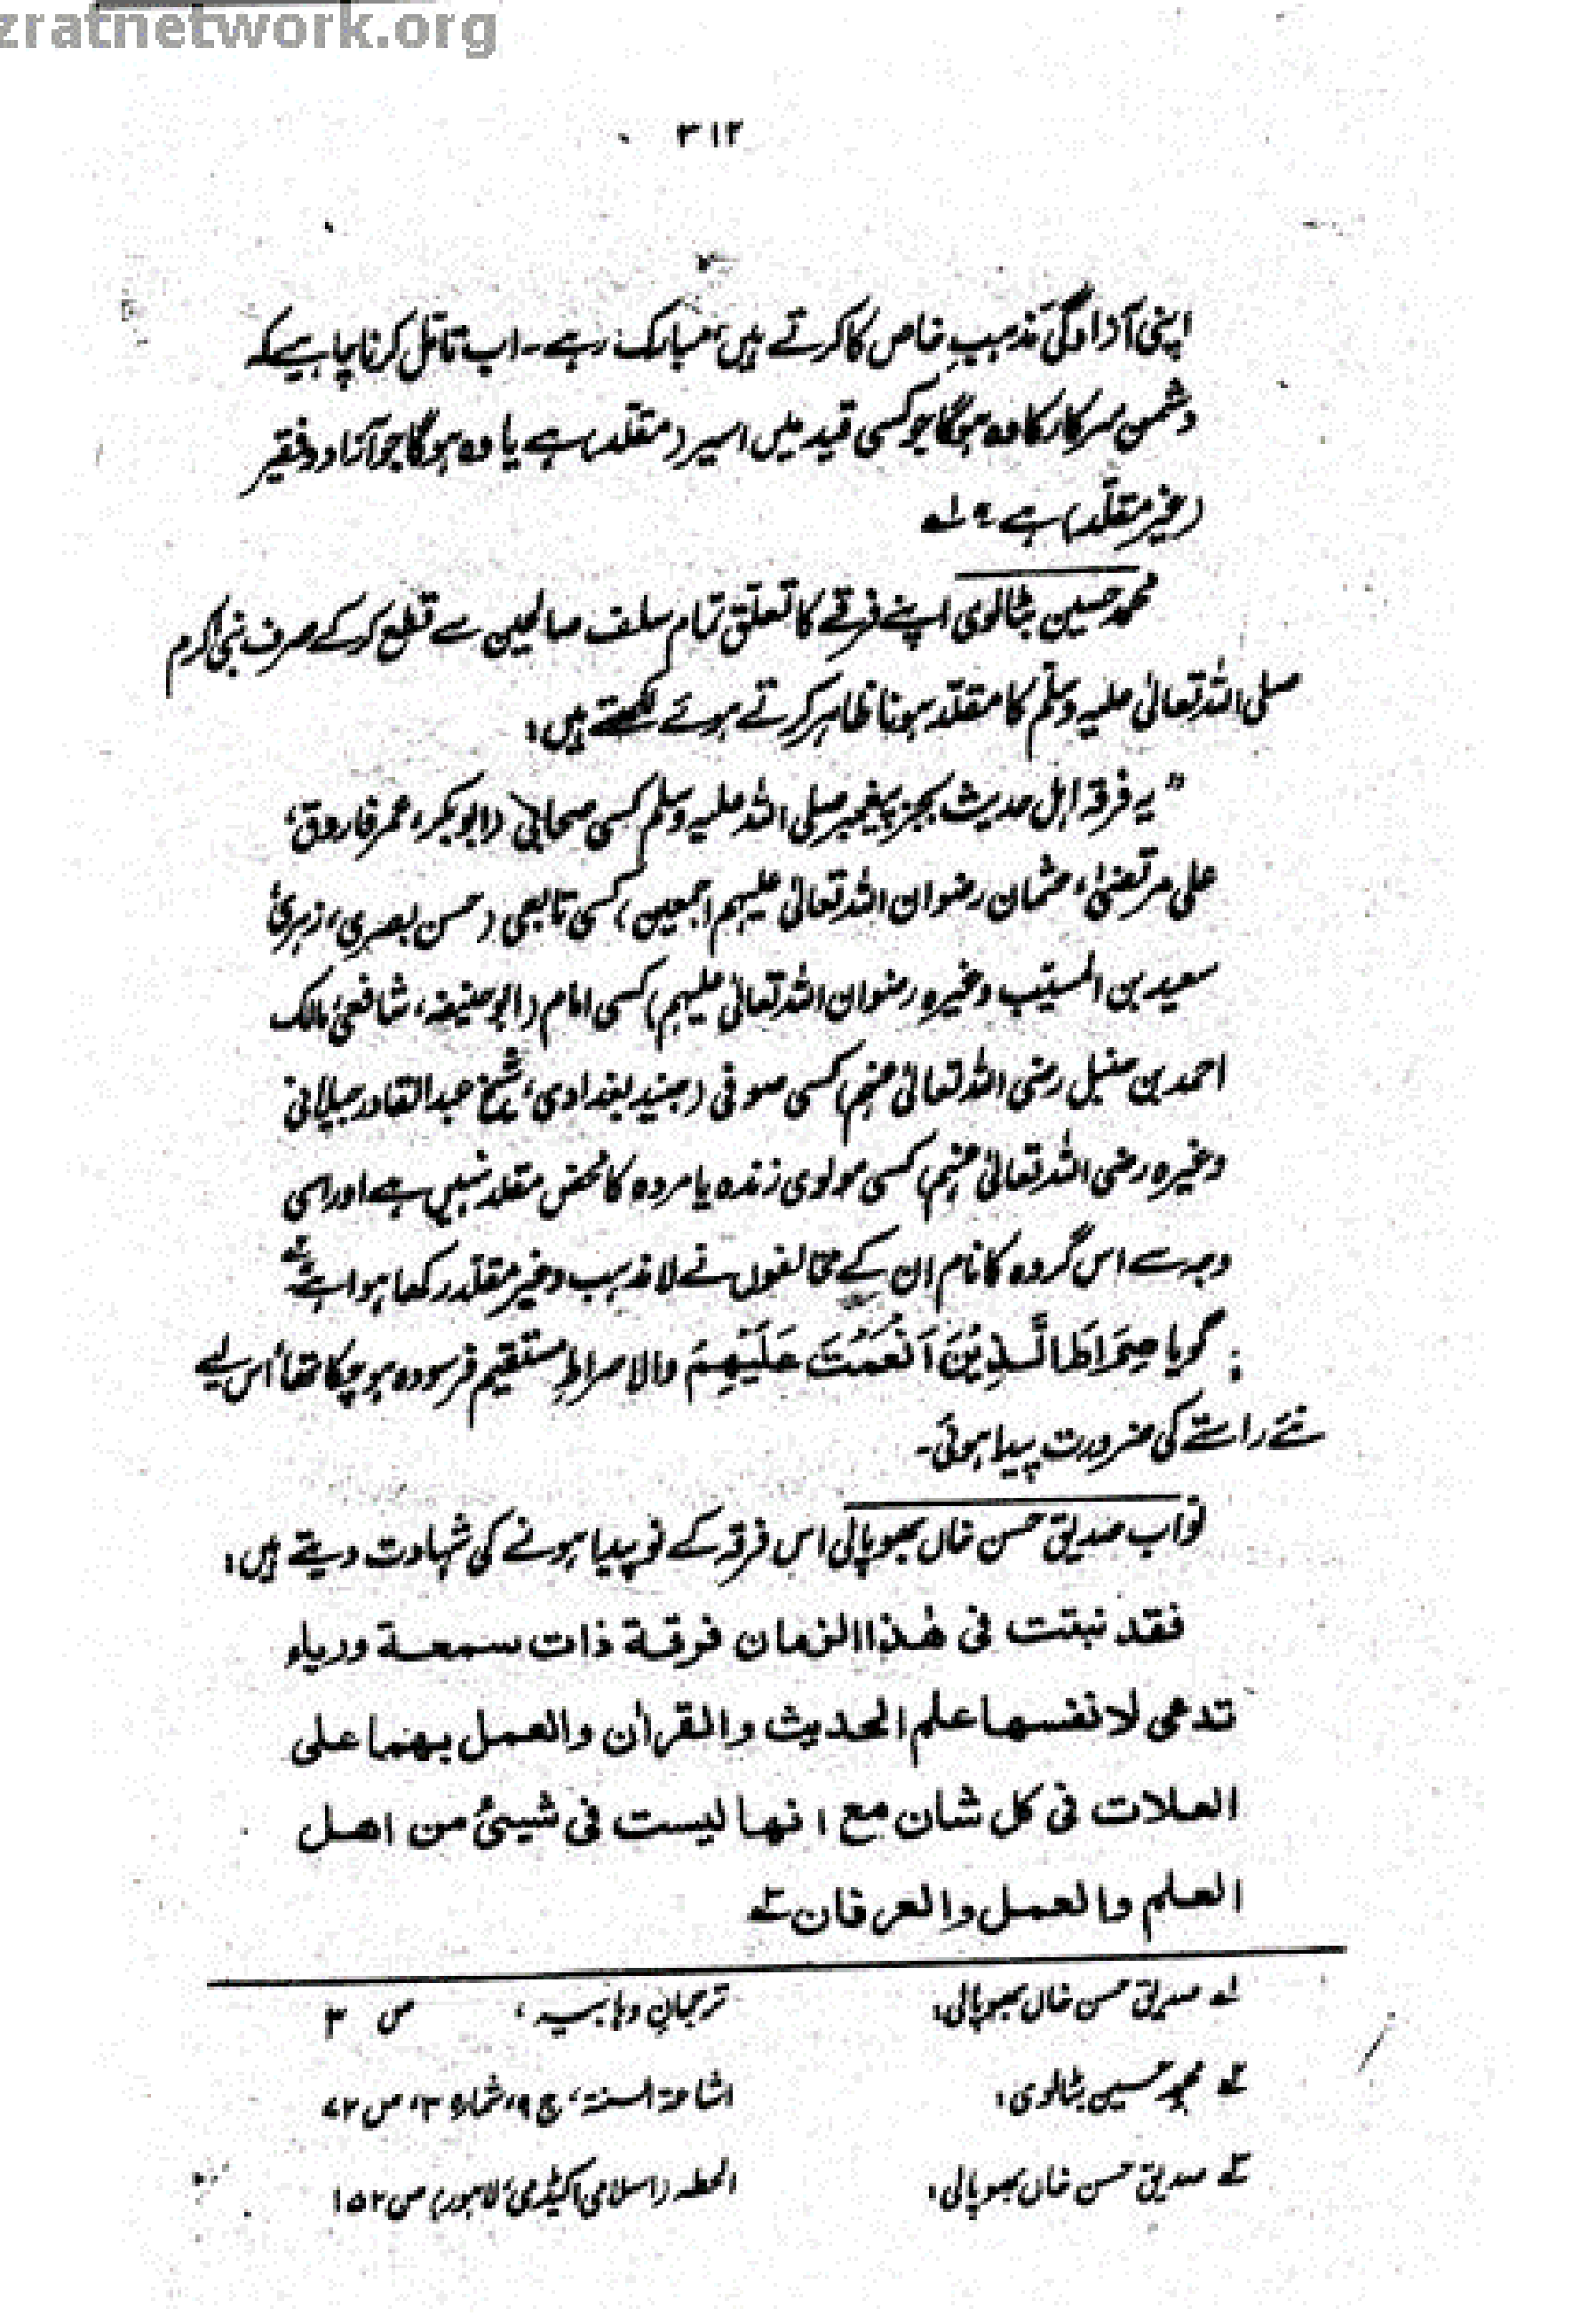 zratnetwork.org
۳۱۲
اپنی آزادگی مذہبِ خاص کا کرتے ہیں، مبارک رہے۔ اب تامّل کرنا چاہیے کہ
دشمن سرکار کا وہ ہوگا جو کسی قید میں اسیر (مقلّد) ہے یا وہ ہوگا جو آزاد و فقیر
(غیر مقلّد) ہے ۱؎
محمد حسین بٹالوی اپنے فرقے کا تعلّق تمام سلف صالحین سے قطع کرکے صرف نبی اکرم
صلی اللہ تعالیٰ علیہ وسلّم کا مقلّد ہونا ظاہر کرتے ہوئے لکھتے ہیں:
"یہ فرقہ اہل حدیث بجز پیغمبر صلی اللہ علیہ وسلم کسی صحابی (ابوبکر، عمر فاروق،
علی مرتضیٰ، عثمان رضوان اللہ تعالیٰ علیہم اجمعین) کسی تابعی (حسن بصری، زہری،
سعید بن المسیّب وغیرہ رضوان اللہ تعالیٰ علیہم) کسی امام (ابوحنیفہ، شافعی، مالک
احمد بن حنبل رضی اللہ تعالیٰ عنہم) کسی صوفی (جنید بغدادی، شیخ عبدالقادر جیلانی
وغیرہ رضی اللہ تعالیٰ عنہم) کسی مولوی زندہ یا مردہ کا محض مقلد نہیں ہے اور اسی
وجہ سے اس گروہ کا نام ان کے مخالفوں نے لامذہب و غیر مقلّد رکھا ہوا ہے ۲؎
گویا صِرَاطَ الَّذِیْنَ اَنْعَمْتَ عَلَیْهِمْ والا صراطِ مستقیم فرسودہ ہو چکا تھا، اس لیے
نئے راستے کی ضرورت پیدا ہوئی۔
نواب صدیق حسن خاں بھوپالی اس فرقہ کے نوپیدا ہونے کی شہادت دیتے ہیں:
فقد نبتت فی هٰذا الزمان فرقة ذات سمعة وریاء
تدعی لانفسها علم الحدیث والقراٰن والعمل بهما علی
العلات فی کل شان مع انها لیست فی شیئ من اهل
العلم والعمل والعرفان ۳؎
۱؎ صدیق حسن خاں بھوپالی: ترجمانِ وہابیہ، ص ۳
۲؎ محمد حسین بٹالوی: اشاعۃ السنۃ، ج ۹، شمارہ ۳، ص ۷۲
۳؎ صدیق حسن خاں بھوپالی: الحطہ (اسلامی اکیڈمی، لاہور) ص ۱۵۲